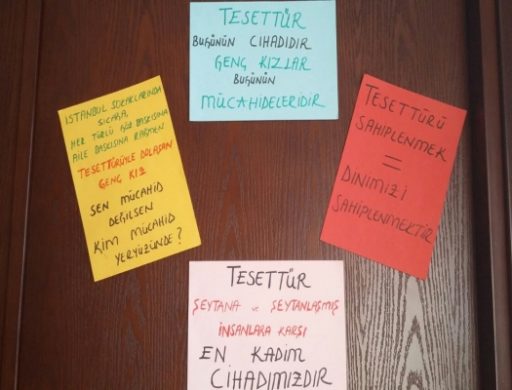 TESETTÜR
BUGÜNÜN CİHADIDIR
GENÇ KIZLAR
BUGÜNÜN
MÜCAHİDELERİDİR
İSTANBUL SOKAKLARINDA
SICAĞA,
HER TÜRLÜ GÖZ BASKISINA
AİLE BASKISINA RAĞMEN
TESETTÜRÜYLE DOLAŞAN
GENÇ KIZ
SEN MÜCAHİD
DEĞİLSEN
KİM MÜCAHİD
YERYÜZÜNDE?
TESETTÜRÜ
SAHİPLENMEK
=
DİNİMİZİ
SAHİPLENMEKTİR
TESETTÜR
ŞEYTANA ve ŞEYTANLAŞMIŞ
İNSANLARA KARŞI
EN KADİM
CİHADIMIZDIR